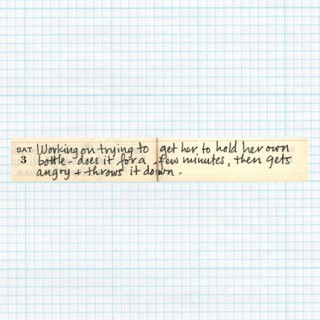 SAT Working on trying to get her to hold her own
3 bottle - does it for a few minutes, then gets
angry + throws it down -